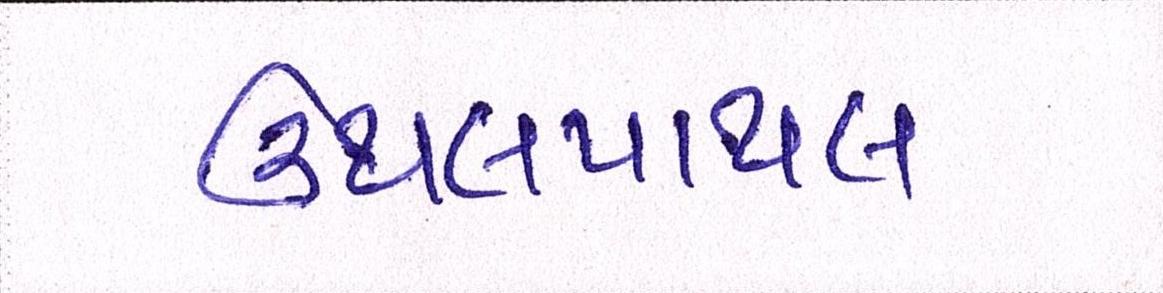 ઉથલપાથલ